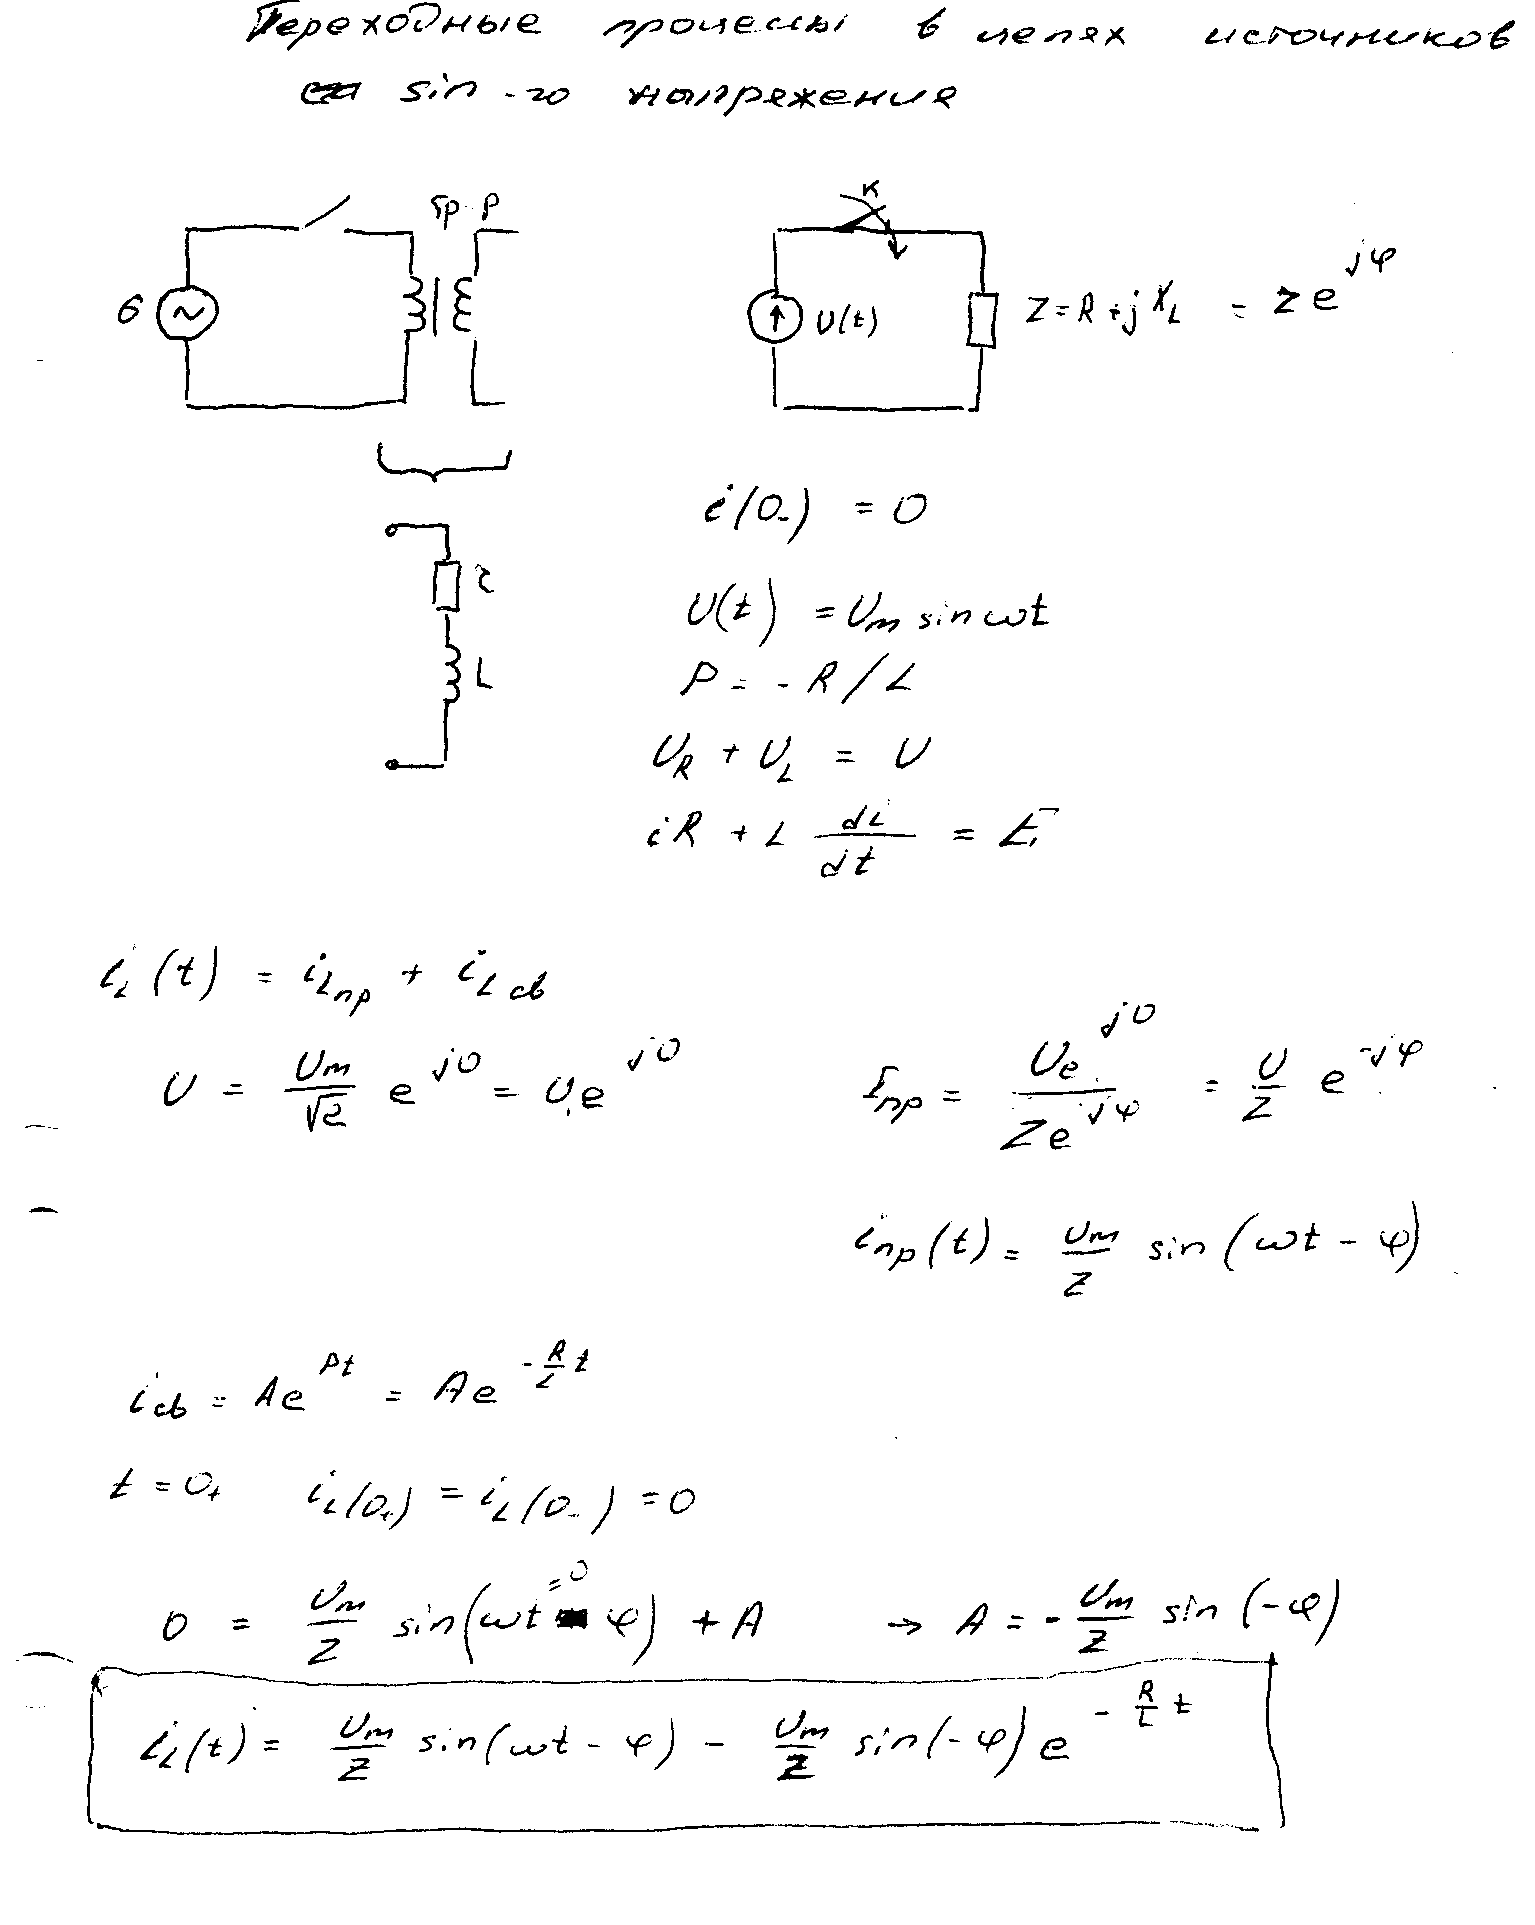 Переходные процессы в цепях источников
sin-го напряжения
Тр-р
К
Z = R + j X_L = z e^{jφ}
U(t)
r
L
i(0_-) = 0
U(t) = U_m sin ωt
P = - R / L
U_R + U_L = U
iR + L di/dt = E
i_L(t) = i_{Lпр} + i_{Lсв}
U = U_m/√2 e^{j0} = U e^{j0}
I_{пр} = U e^{j0} / Z e^{jφ} = U/Z e^{-jφ}
i_{пр}(t) = U_m/Z sin(ωt - φ)
i_{св} = A e^{Pt} = A e^{-R/L t}
t = 0_+ i_L(0_+) = i_L(0_-) = 0
=0
0 = U_m/Z sin(ωt - φ) + A → A = - U_m/Z sin(-φ)
i_L(t) = U_m/Z sin(ωt - φ) - U_m/Z sin(-φ) e^{-R/L t}